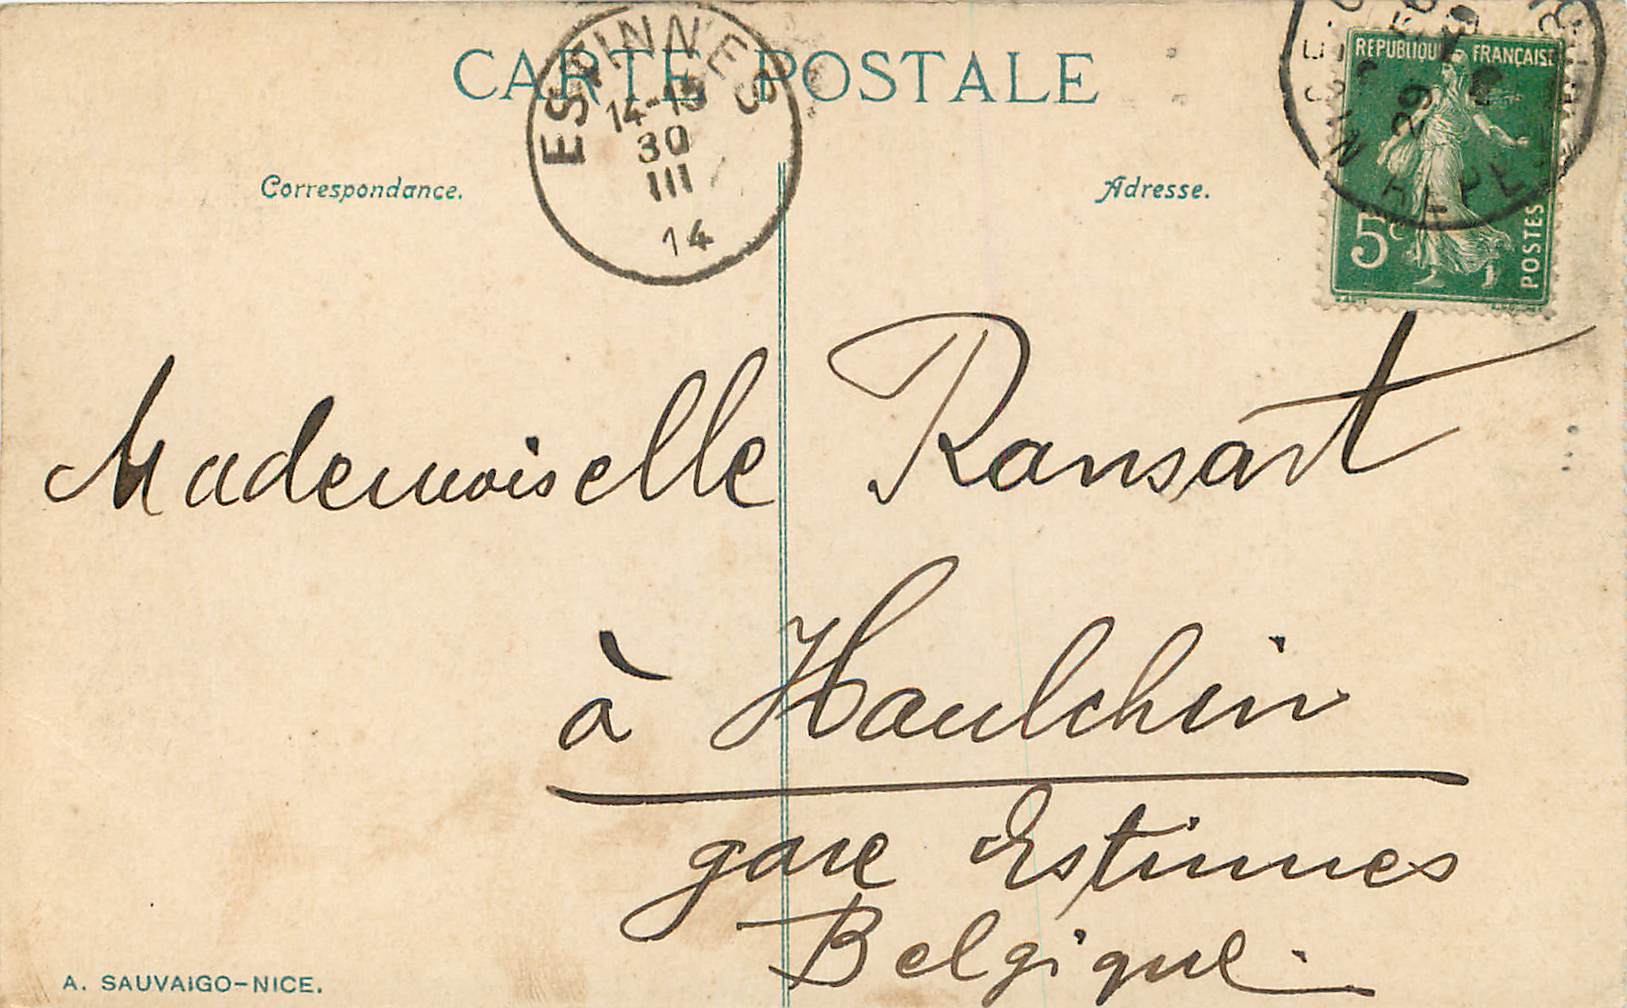 CARTE POSTALE
ESPINNES
14-15
30
III
14
Correspondance.
Adresse.
RÉPUBLIQUE FRANÇAISE
29
5c
POSTES
Mademoiselle Ransart
à Haulchin
gare Estinnes
Belgique.
A. SAUVAIGO-NICE.